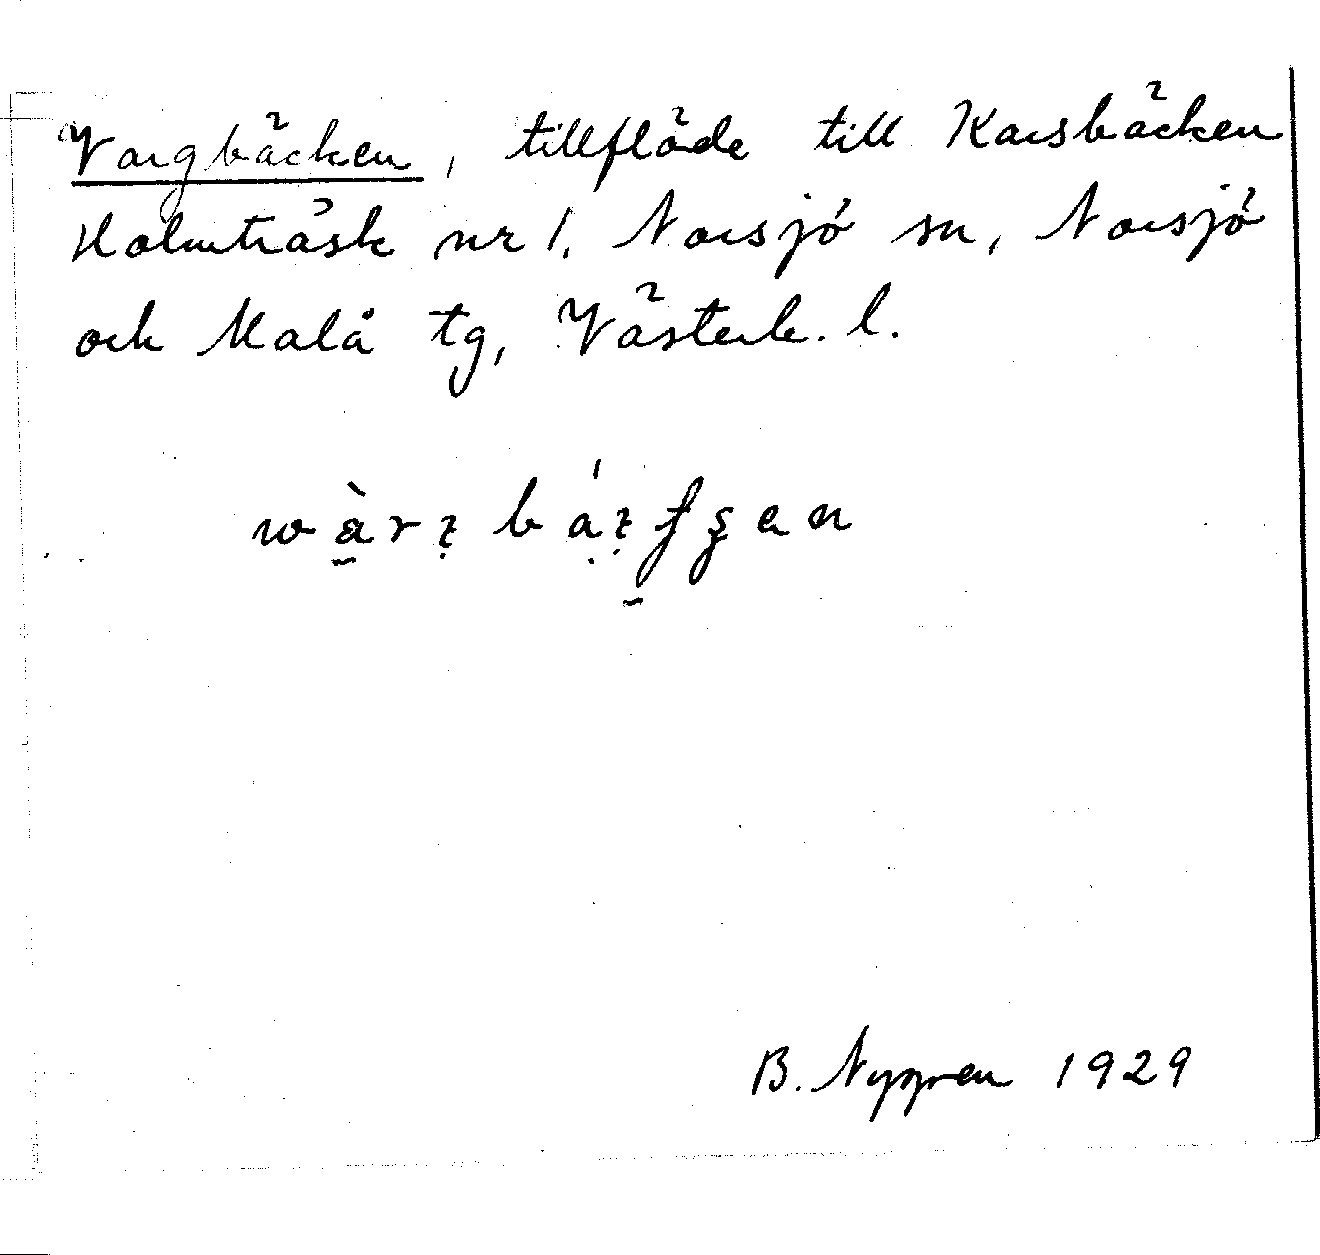 Vargbäcken, tillflöde till Karsbäcken
Holmträsk nr 1, Norsjö sn, Norsjö
och Malå tg, Västerb. l.
B. Nygren 1929